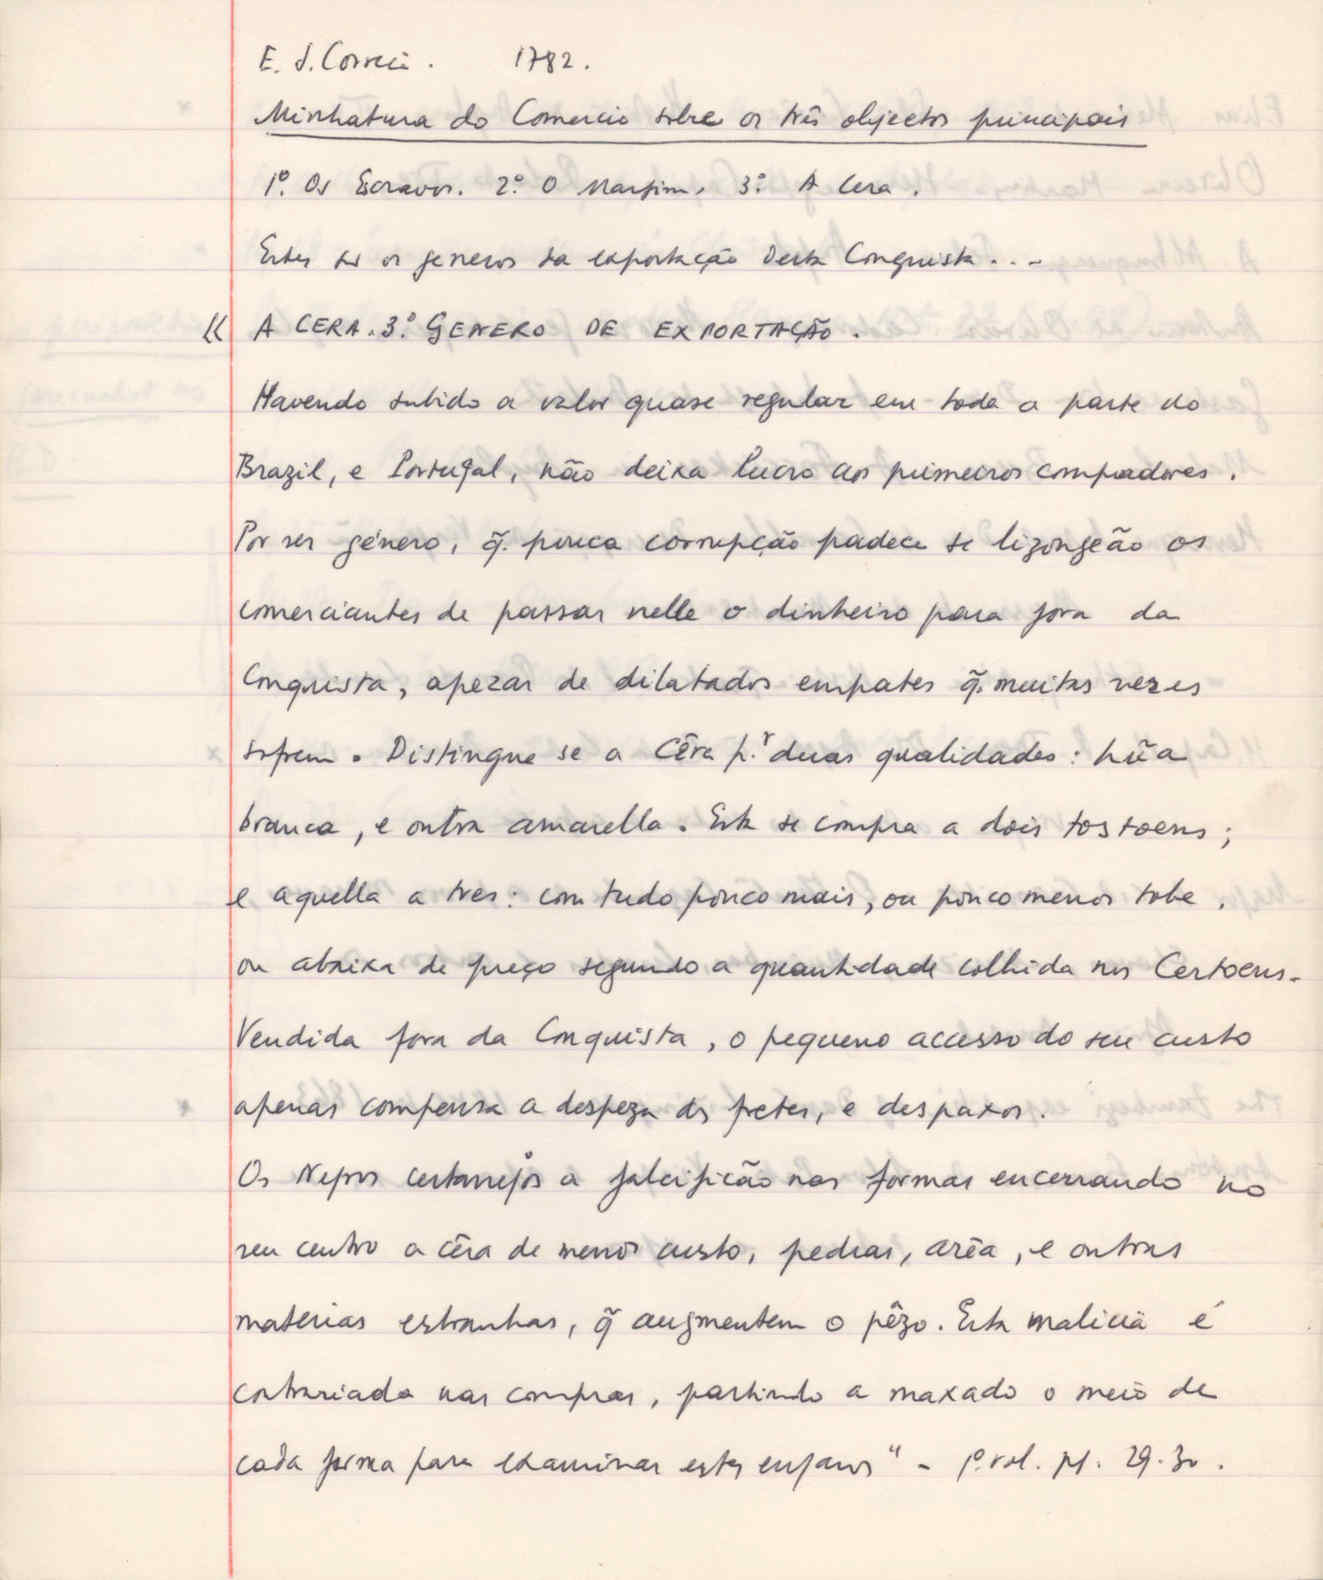 E. S. Correia. 1782.
Minhatura do Comercio sobre os três objectos principais
1º. Os Escravos. 2º. O Marfim. 3º. A Cera.
Estes são os generos da exportação desta Conquista...
« A CERA. 3º. GENERO DE EXPORTAÇÃO.
Havendo subido a valor quase regular em toda a parte do
Brazil, e Portugal, não deixa lucro aos primeiros compradores.
Por ser género, q̃. pouca corrupção padece se lizongeão os
comerciantes de passar nelle o dinheiro para fora da
Conquista, apezar de dilatados empates q̃. muitas vezes
sofrem. Distingue se a Cêra p.r duas qualidades: hũa
branca, e outra amarella. Esta se compra a dois tostoens;
e aquella a tres: com tudo pouco mais, ou pouco menos sobe,
ou abaixa de preço segundo a quantidade colhida nos Certoens.
Vendida fora da Conquista, o pequeno accesso do seu custo
apenas compensa a despeza dos fretes, e despaxos.
Os Negros certanejos a falcificão nas formas encerrando no
seu centro a cêra de menos custo, pedras, arêa, e outras
materias estranhas, q̃ augmentem o pêzo. Esta malicia é
contrariada nas compras, partindo a maxado o meio de
cada forma para examinar estes enganos" - 1º. vol. pp. 29.30.